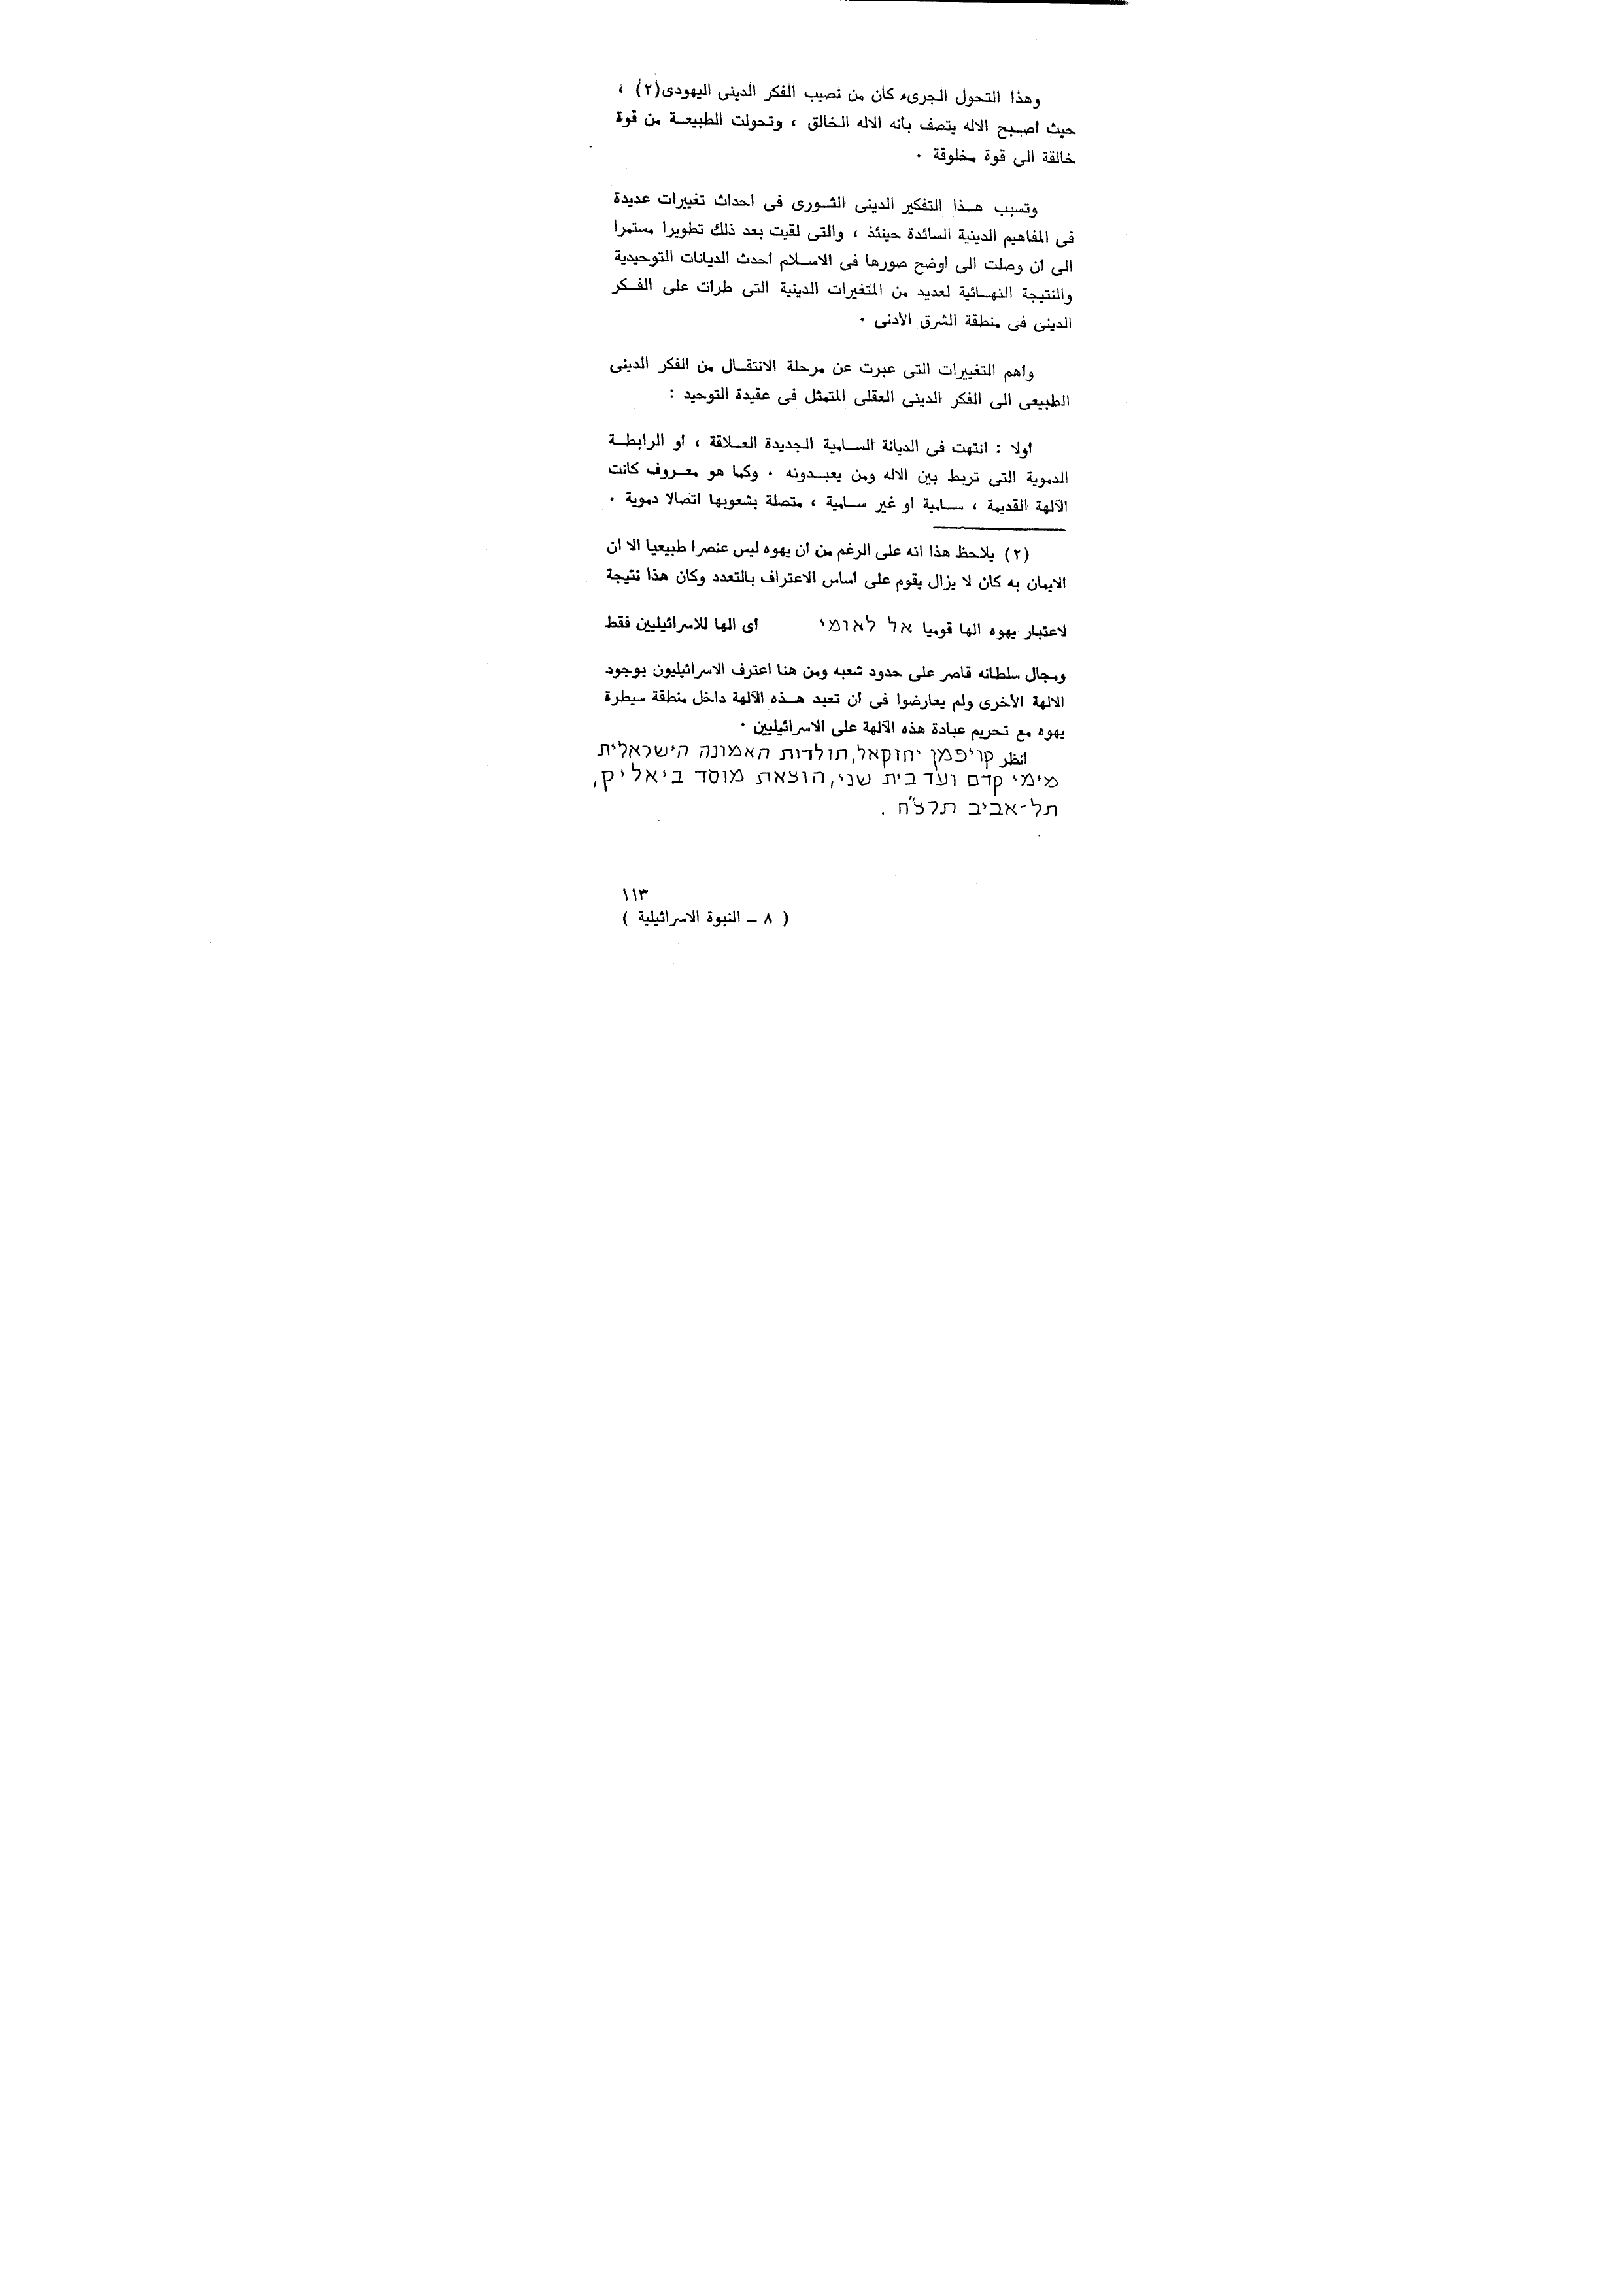 وهذا التحول الجرىء كان من نصيب الفكر الدينى اليهودى(٢) ،
حيث أصبح الاله يتصف بأنه الاله الخالق ، وتحولت الطبيعة من قوة
خالقة الى قوة مخلوقة .
وتسبب هذا التفكير الدينى الثورى فى احداث تغييرات عديدة
فى المفاهيم الدينية السائدة حينئذ ، والتى لقيت بعد ذلك تطويرا مستمرا
الى أن وصلت الى أوضح صورها فى الاسلام أحدث الديانات التوحيدية
والنتيجة النهائية لعديد من المتغيرات الدينية التى طرأت على الفكر
الدينى فى منطقة الشرق الأدنى .
وأهم التغييرات التى عبرت عن مرحلة الانتقال من الفكر الدينى
الطبيعى الى الفكر الدينى العقلى المتمثل فى عقيدة التوحيد :
أولا : انتهت فى الديانة السامية الجديدة العلاقة ، أو الرابطة
الدموية التى تربط بين الاله ومن يعبدونه . وكما هو معروف كانت
الآلهة القديمة ، سامية أو غير سامية ، متصلة بشعوبها اتصالا دموية .
(٢) يلاحظ هذا انه على الرغم من أن يهوه ليس عنصرا طبيعيا الا أن
الايمان به كان لا يزال يقوم على أساس الاعتراف بالتعدد وكان هذا نتيجة
لاعتبار يهوه الها قوميا אל לאומי أى الها للاسرائيليين فقط
ومجال سلطانه قاصر على حدود شعبه ومن هنا اعترف الاسرائيليون بوجود
الالهة الأخرى ولم يعارضوا فى أن تعبد هذه الآلهة داخل منطقة سيطرة
يهوه مع تحريم عبادة هذه الآلهة على الاسرائيليين .
انظر קויפמן יחזקאל, תולדות האמונה הישראלית
מימי קדם ועד בית שני, הוצאת מוסד ביאליק,
תל-אביב תרצ"ח .
١١٣
( ٨ ــ النبوة الاسرائيلية )